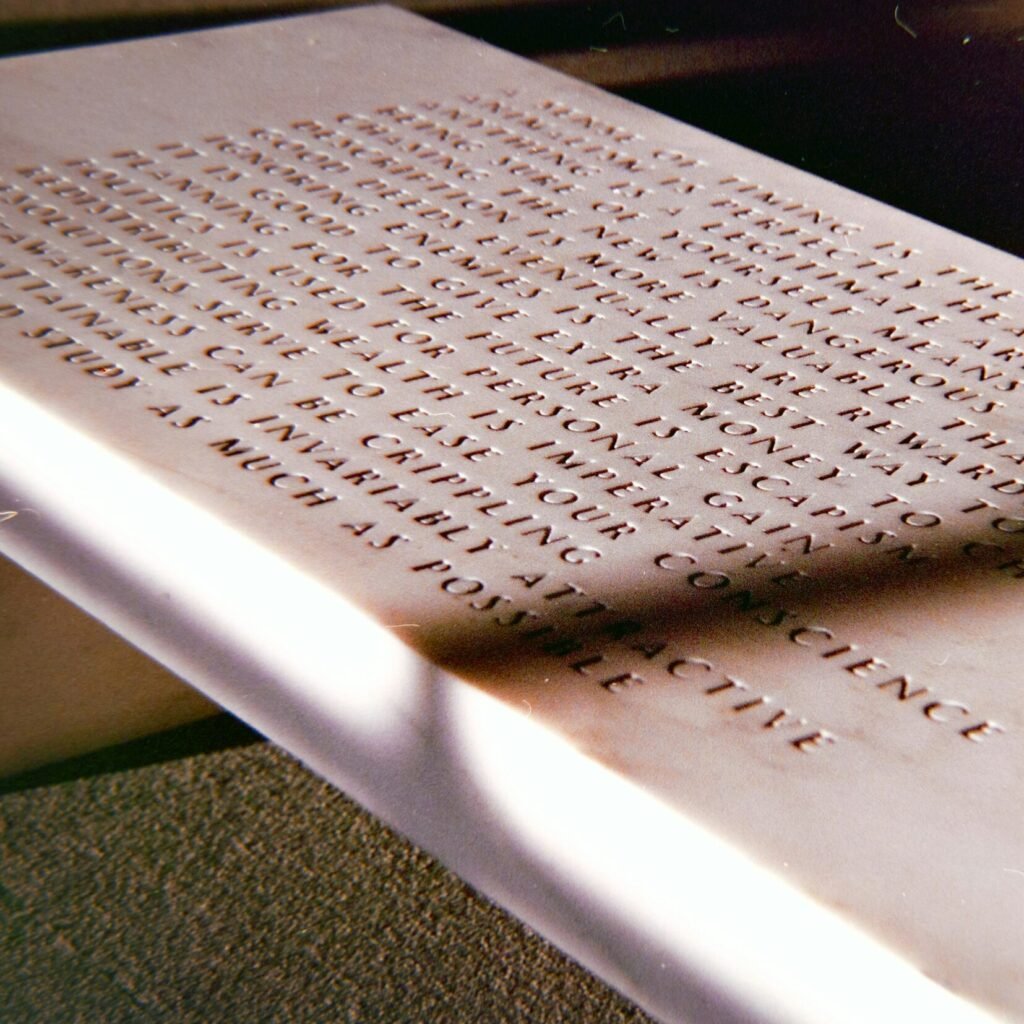 A SENSE OF TIMING IS THE
ANIMALISM IS PERFECTLY
ANYTHING IS A LEGITIMATE
BEING SURE OF YOURSELF MEANS
CHASING THE NEW IS DANGEROUS
DESCRIPTION IS MORE VALUABLE THA
GOOD DEEDS EVENTUALLY ARE REWARD
IGNORING ENEMIES IS THE BEST WAY TO
IT IS GOOD TO GIVE EXTRA MONEY TO CH
PLANNING FOR THE FUTURE IS ESCAPISM
POLITICS IS USED FOR PERSONAL GAIN
REDISTRIBUTING WEALTH IS IMPERATIVE
RESOLUTIONS SERVE TO EASE YOUR CONSCIENCE
AWARENESS CAN BE CRIPPLING
ATTAINABLE IS INVARIABLY ATTRACTIVE
D STUDY AS MUCH AS POSSIBLE